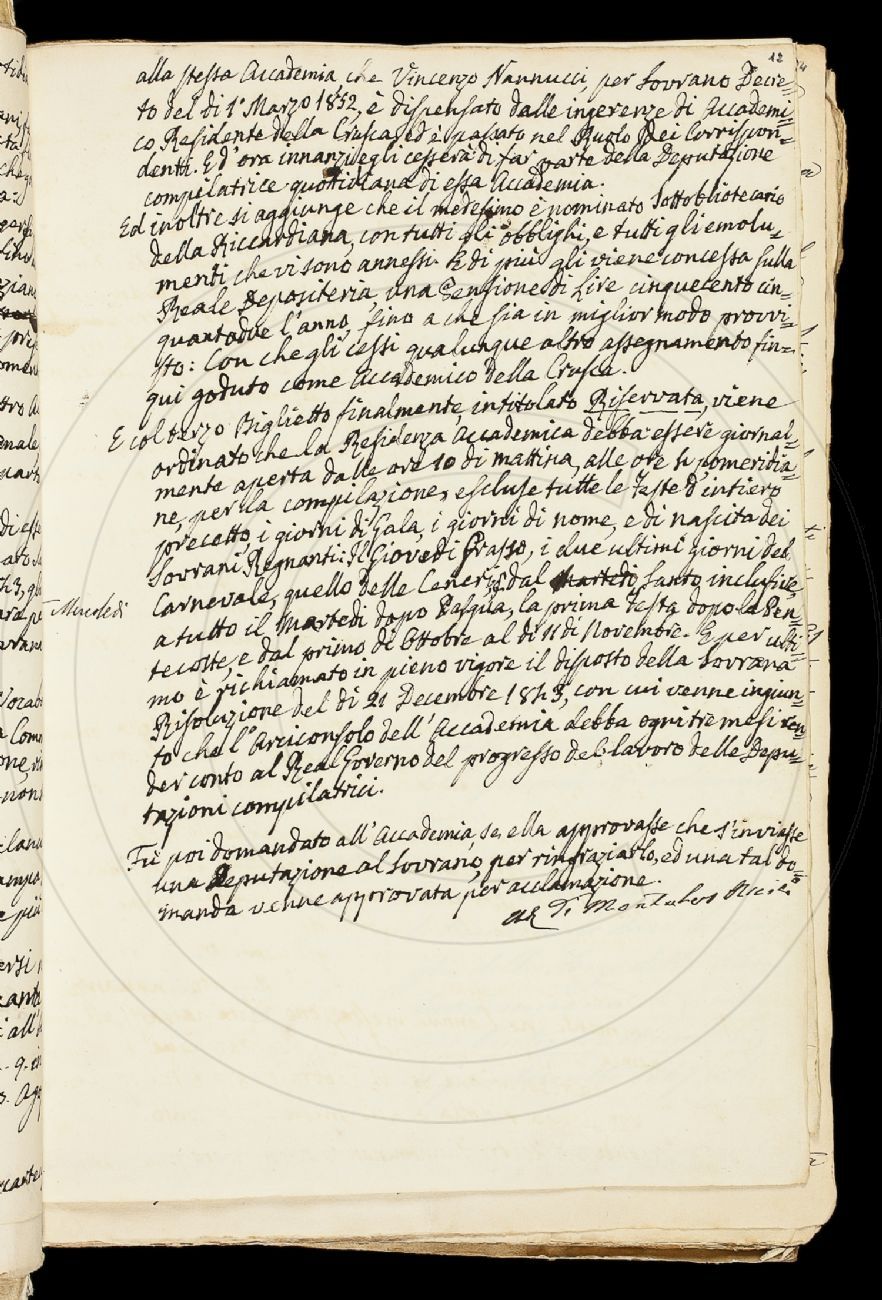 12
alla stessa Accademia, che Vincenzo Nannucci, per Sovrano Decre=
to del dì 1° Marzo 1852, è dispensato dalle ingerenze di Accademi=
co Residente della Crusca, ed è passato nel Ruolo dei Corrispon=
denti. E d'ora innanzi egli cesserà di far parte della Deputazione
compilatrice quotidiana di essa Accademia.
Ed inoltre si aggiunge che il medesimo è nominato Sottobibliotecario
della Riccardiana, con tutti gli obblighi, e tutti gli emolu=
menti, che vi sono annessi. E di più gli viene concessa sulla
Reale Depositeria, una Pensione di Lire cinquecento cin=
quantadue l'anno, fino a che sia in miglior modo provvi=
sto: Con che gli cessi qualunque altro assegnamento fin=
qui goduto come Accademico della Crusca.
E col terzo Biglietto finalmente, intitolato Riservata, viene
ordinato che la Residenza Accademica debba essere giornal=
mente aperta dalle ore 10 di mattina, alle ore 4 pomeridia=
ne, per la compilazione, escluse tutte le feste d'intiero
precetto, i giorni di Gala, i giorni di nome, e di nascita dei
Sovrani Regnanti: Il Giovedì Grasso, i due ultimi giorni del
Carnevale, quello delle Ceneri; dal Martedì Santo inclusive,
Mercoledì
a tutto il Martedì dopo Pasqua, la prima festa dopo la Pen=
tecoste, e dal primo di Ottobre al dì 11 di Novembre. E per ulti=
mo è richiamato in pieno vigore il disposto della Sovrana
Risoluzione del dì 21 Decembre 1843, con cui venne ingiun=
to che l'Arciconsolo dell'Accademia debba ogni tre mesi ren=
der conto al Real Governo del progresso del lavoro delle Depu=
tazioni compilatrici.
Fù poi domandato all'Accademia, se ella approvasse che s'inviasse
una Deputazione al Sovrano, per ringraziarlo, ed una tal do=
manda venne approvata per acclamazione.